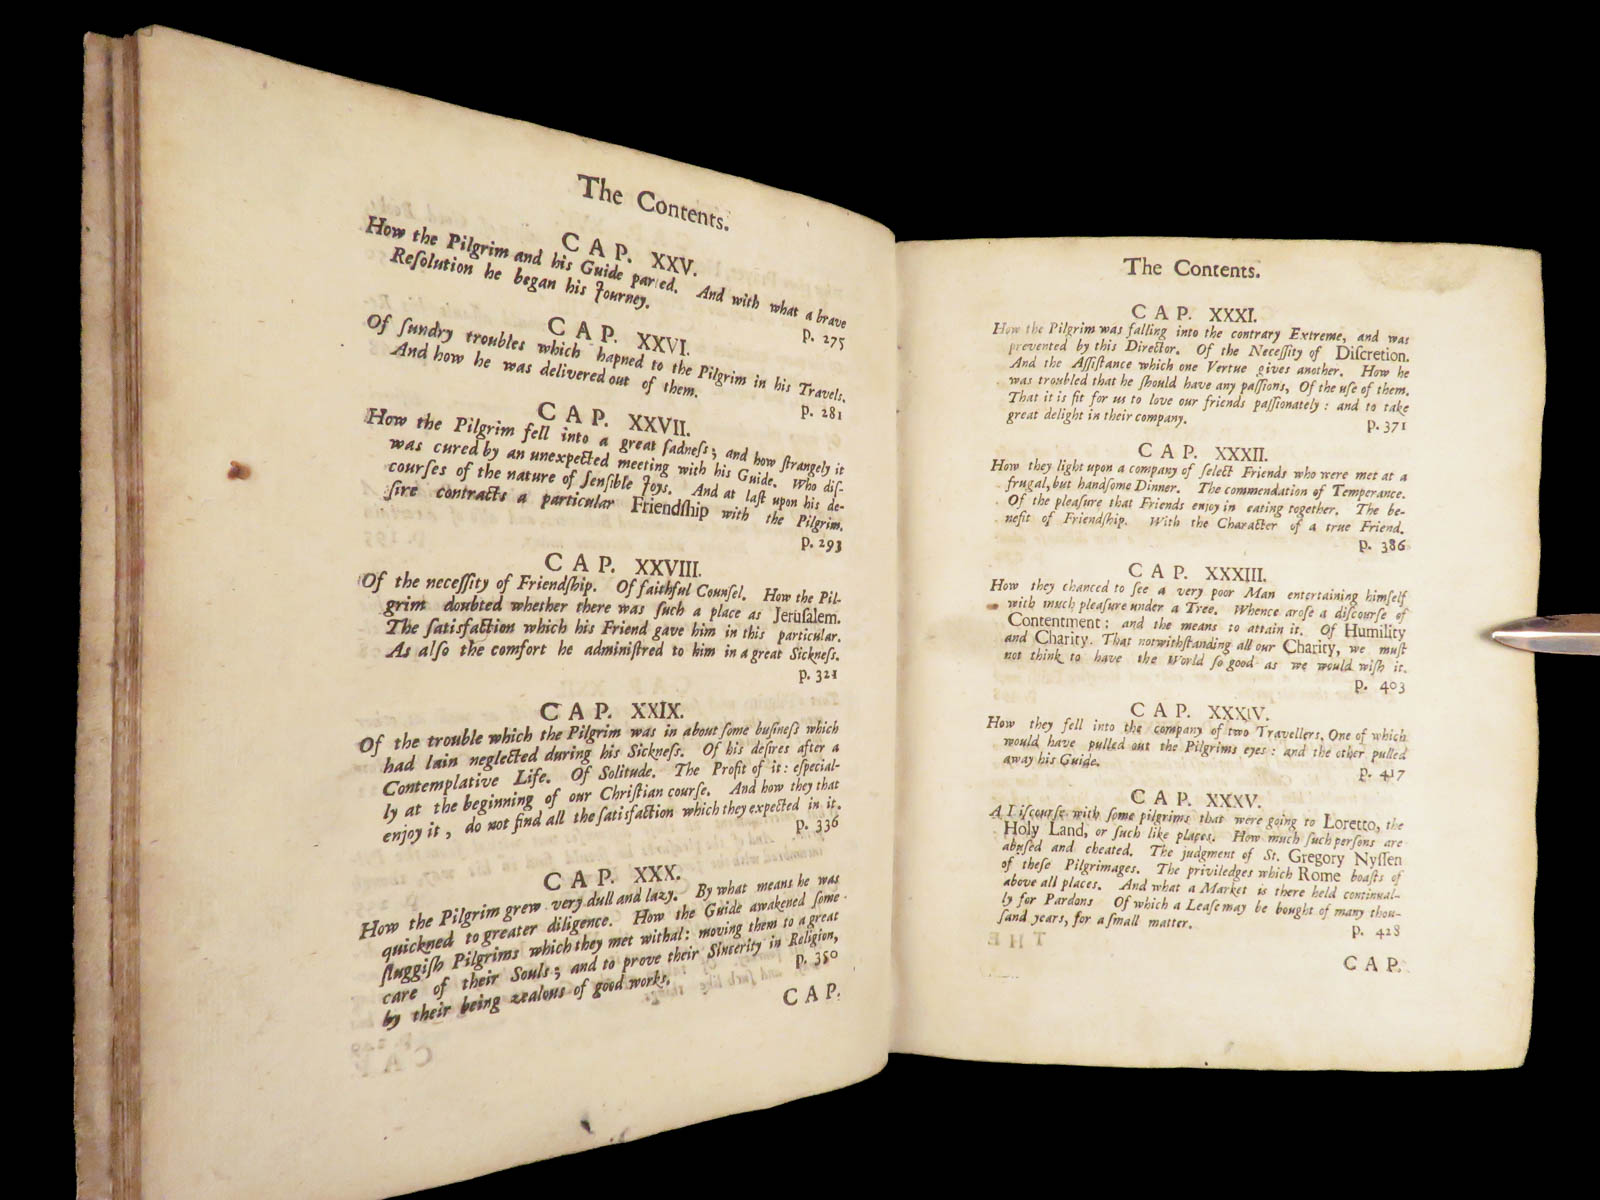 The Contents.
CAP. XXV.
How the Pilgrim and his Guide parted. And with what a brave
Reſolution he began his Journey.
p. 275
CAP. XXVI.
Of ſundry troubles which hapned to the Pilgrim in his Travels.
And how he was delivered out of them.
p. 281
CAP. XXVII.
How the Pilgrim fell into a great ſadneſs; and how ſtrangely it
was cured by an unexpected meeting with his Guide. Who diſ-
courſes of the nature of ſenſible Joys. And at laſt upon his de-
ſire contracts a particular Friendſhip with the Pilgrim.
p. 293
CAP. XXVIII.
Of the neceſſity of Friendſhip. Of faithful Counſel. How the Pil-
grim doubted whether there was ſuch a place as Jeruſalem.
The ſatisfaction which his Friend gave him in this particular.
As alſo the comfort he adminiſtred to him in a great Sickneſs.
p. 321
CAP. XXIX.
Of the trouble which the Pilgrim was in about ſome buſineſs which
had lain neglected during his Sickneſs. Of his deſires after a
Contemplative Life. Of Solitude. The Profit of it: eſpecial-
ly at the beginning of our Chriſtian courſe. And how they that
enjoy it, do not find all the ſatisfaction which they expected in it.
p. 336
CAP. XXX.
How the Pilgrim grew very dull and lazy. By what means he was
quickned to greater diligence. How the Guide awakened ſome
ſluggiſh Pilgrims which they met withal: moving them to a great
care of their Souls; and to prove their Sincerity in Religion,
by their being zealous of good works.
p. 350
CAP.
The Contents.
CAP. XXXI.
How the Pilgrim was falling into the contrary Extreme, and was
prevented by this Director. Of the Neceſſity of Diſcretion.
And the Aſſiſtance which one Vertue gives another. How he
was troubled that he ſhould have any paſſions, Of the uſe of them.
That it is fit for us to love our friends paſſionately: and to take
great delight in their company.
p. 371
CAP. XXXII.
How they light upon a company of ſelect Friends who were met at a
frugal, but handſome Dinner. The commendation of Temperance.
Of the pleaſure that Friends enjoy in eating together. The be-
nefit of Friendſhip. With the Character of a true Friend.
p. 386
CAP. XXXIII.
How they chanced to ſee a very poor Man entertaining himſelf
with much pleaſure under a Tree. Whence aroſe a diſcourſe of
Contentment: and the means to attain it. Of Humility
and Charity. That notwithſtanding all our Charity, we muſt
not think to have the World ſo good as we would wiſh it.
p. 403
CAP. XXXIV.
How they fell into the company of two Travellers, One of which
would have pulled out the Pilgrims eyes: and the other pulled
away his Guide.
p. 417
CAP. XXXV.
A Diſcourſe with ſome pilgrims that were going to Loretto, the
Holy Land, or ſuch like places. How much ſuch perſons are
abuſed and cheated. The judgment of St. Gregory Nyſſen
of theſe Pilgrimages. The priviledges which Rome boaſts of
above all places. And what a Market is there held continual-
ly for Pardons Of which a Leaſe may be bought of many thou-
ſand years, for a ſmall matter.
p. 428
CAP.